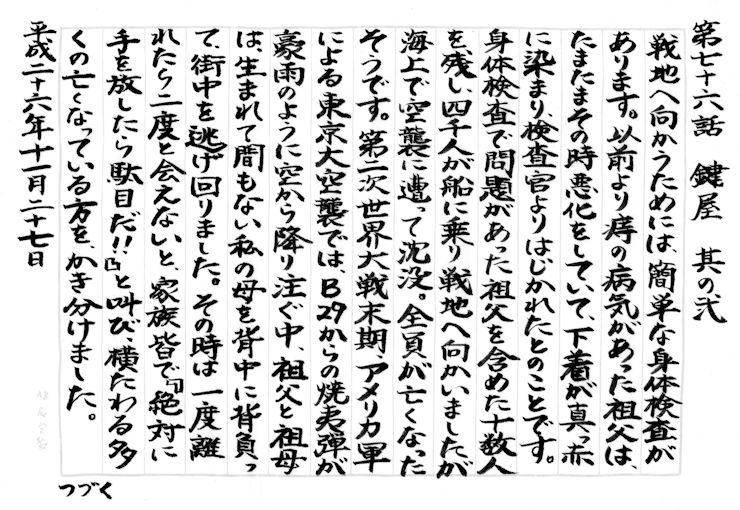 第七十六話 鍵屋 其の弐
戦地へ向かうためには、簡単な身体検査が
あります。以前より痔の病気があった祖父は、
たまたまその時悪化をしていて、下着が真っ赤
に染まり、検査官よりはじかれたとのことです。
身体検査で問題があった祖父を含めた十数人
を残し、四千人が船に乗り戦地へ向かいましたが
海上で空襲に遭って沈没。全員が亡くなった
そうです。第二次世界大戦末期、アメリカ軍
による東京大空襲では、B29からの焼夷弾が
豪雨のように空から降り注ぐ中、祖父と祖母
は、生まれて間もない私の母を背中に背負っ
て、街中を逃げ回りました。その時は一度離
れたら二度と会えないと、家族皆で『絶対に
手を放したら駄目だ!!』と叫び、横たわる多
くの亡くなっている方を、かき分けました。
平成二十六年十一月二十七日
つづく